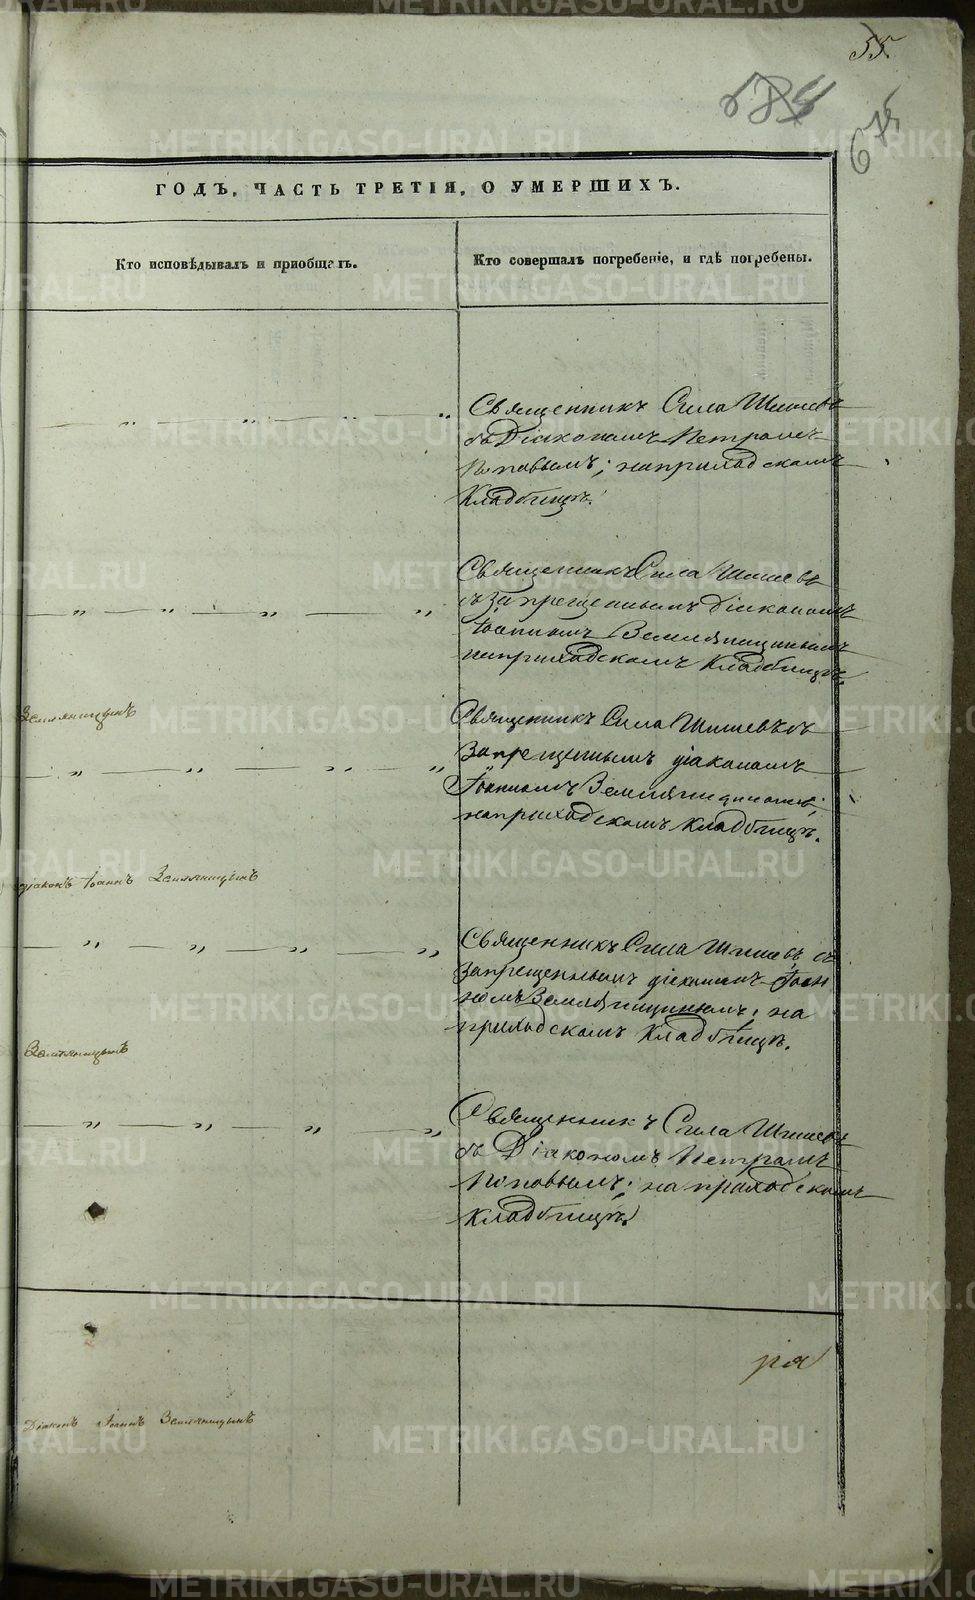 55.
ГОДЪ, ЧАСТЬ ТРЕТІЯ, О УМЕРШИХЪ.
Кто исповѣдывалъ и приобщалъ.
Кто совершалъ погребеніе, и гдѣ погребены.
Священникъ Сила Шишевъ
съ Діакономъ Петромъ
Поповымъ; на приходскомъ
Кладбищѣ.
Священникъ Сила Шишевъ
съ запрещеннымъ Діакономъ
Іоанномъ Земляницынымъ
на приходскомъ Кладбищѣ.
Земляницынъ
Священникъ Сила Шишевъ съ
Запрещеннымъ діакономъ
Іоанномъ Земляницынымъ;
на приходскомъ Кладбищѣ.
діаконъ Іоаннъ Земляницынъ
Священникъ Сила Шишевъ съ
Запрещеннымъ діакономъ Іоан
номъ Земляницынымъ; на
приходскомъ Кладбищѣ.
Земляницынъ
Священникъ Сила Шишевъ
съ Діакономъ Петромъ
Поповымъ; на приходскомъ
Кладбищѣ.
Діаконъ Іоаннъ Земляницынъ
METRIKI.GASO-URAL.RU